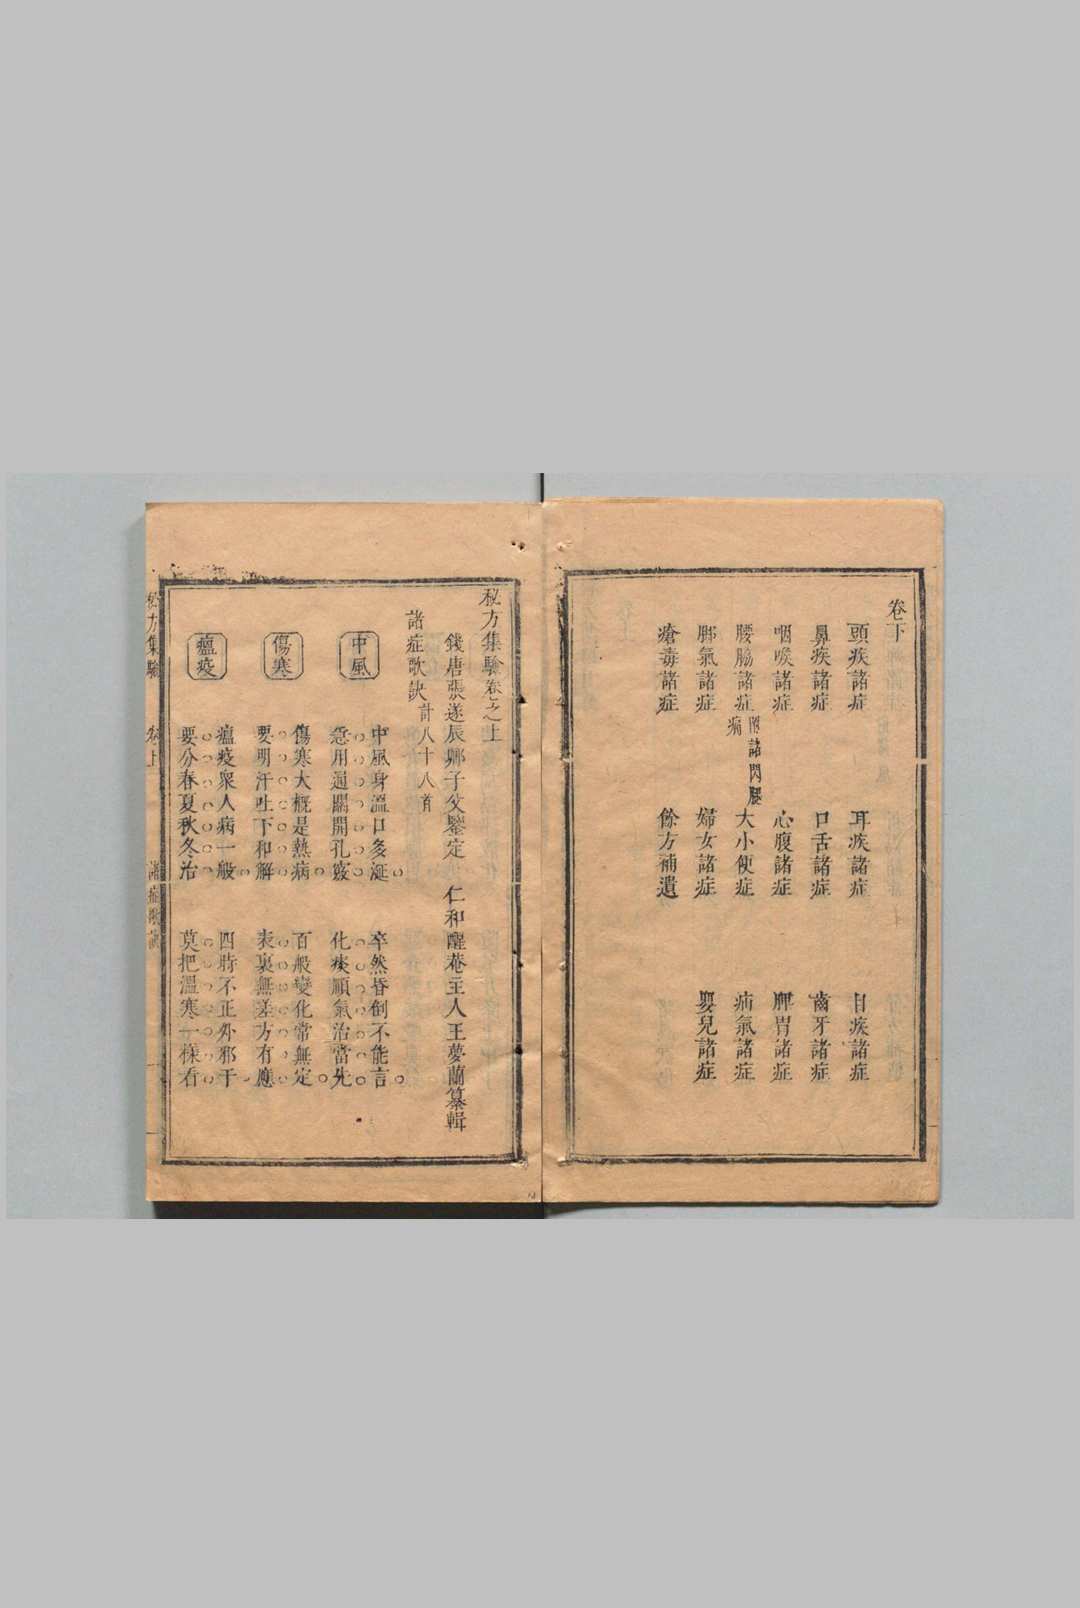 卷下
頭疾諸症 耳疾諸症 目疾諸症
鼻疾諸症 口舌諸症 齒牙諸症
咽喉諸症 心腹諸症 脾胃諸症
腰脇諸症 附諸閃腿痛 大小便症 疝氣諸症
脚氣諸症 婦女諸症 嬰兒諸症
瘡毒諸症 餘方補遺
秘方集驗卷之上
錢唐張遂辰卿子父鑒定 仁和醒菴主人王夢蘭纂輯
諸症歌訣 計八十八首
中風
中風身溫口多涎 卒然昏倒不能言
急用通關開孔竅 化痰順氣治當先
傷寒
傷寒大概是熱病 百般變化常無定
要明汗吐下和解 表裏無差方有應
瘟疫
瘟疫眾人病一般 四時不正外邪干
要分春夏秋冬治 莫把溫寒一樣看
秘方集驗 卷上 諸症歌訣